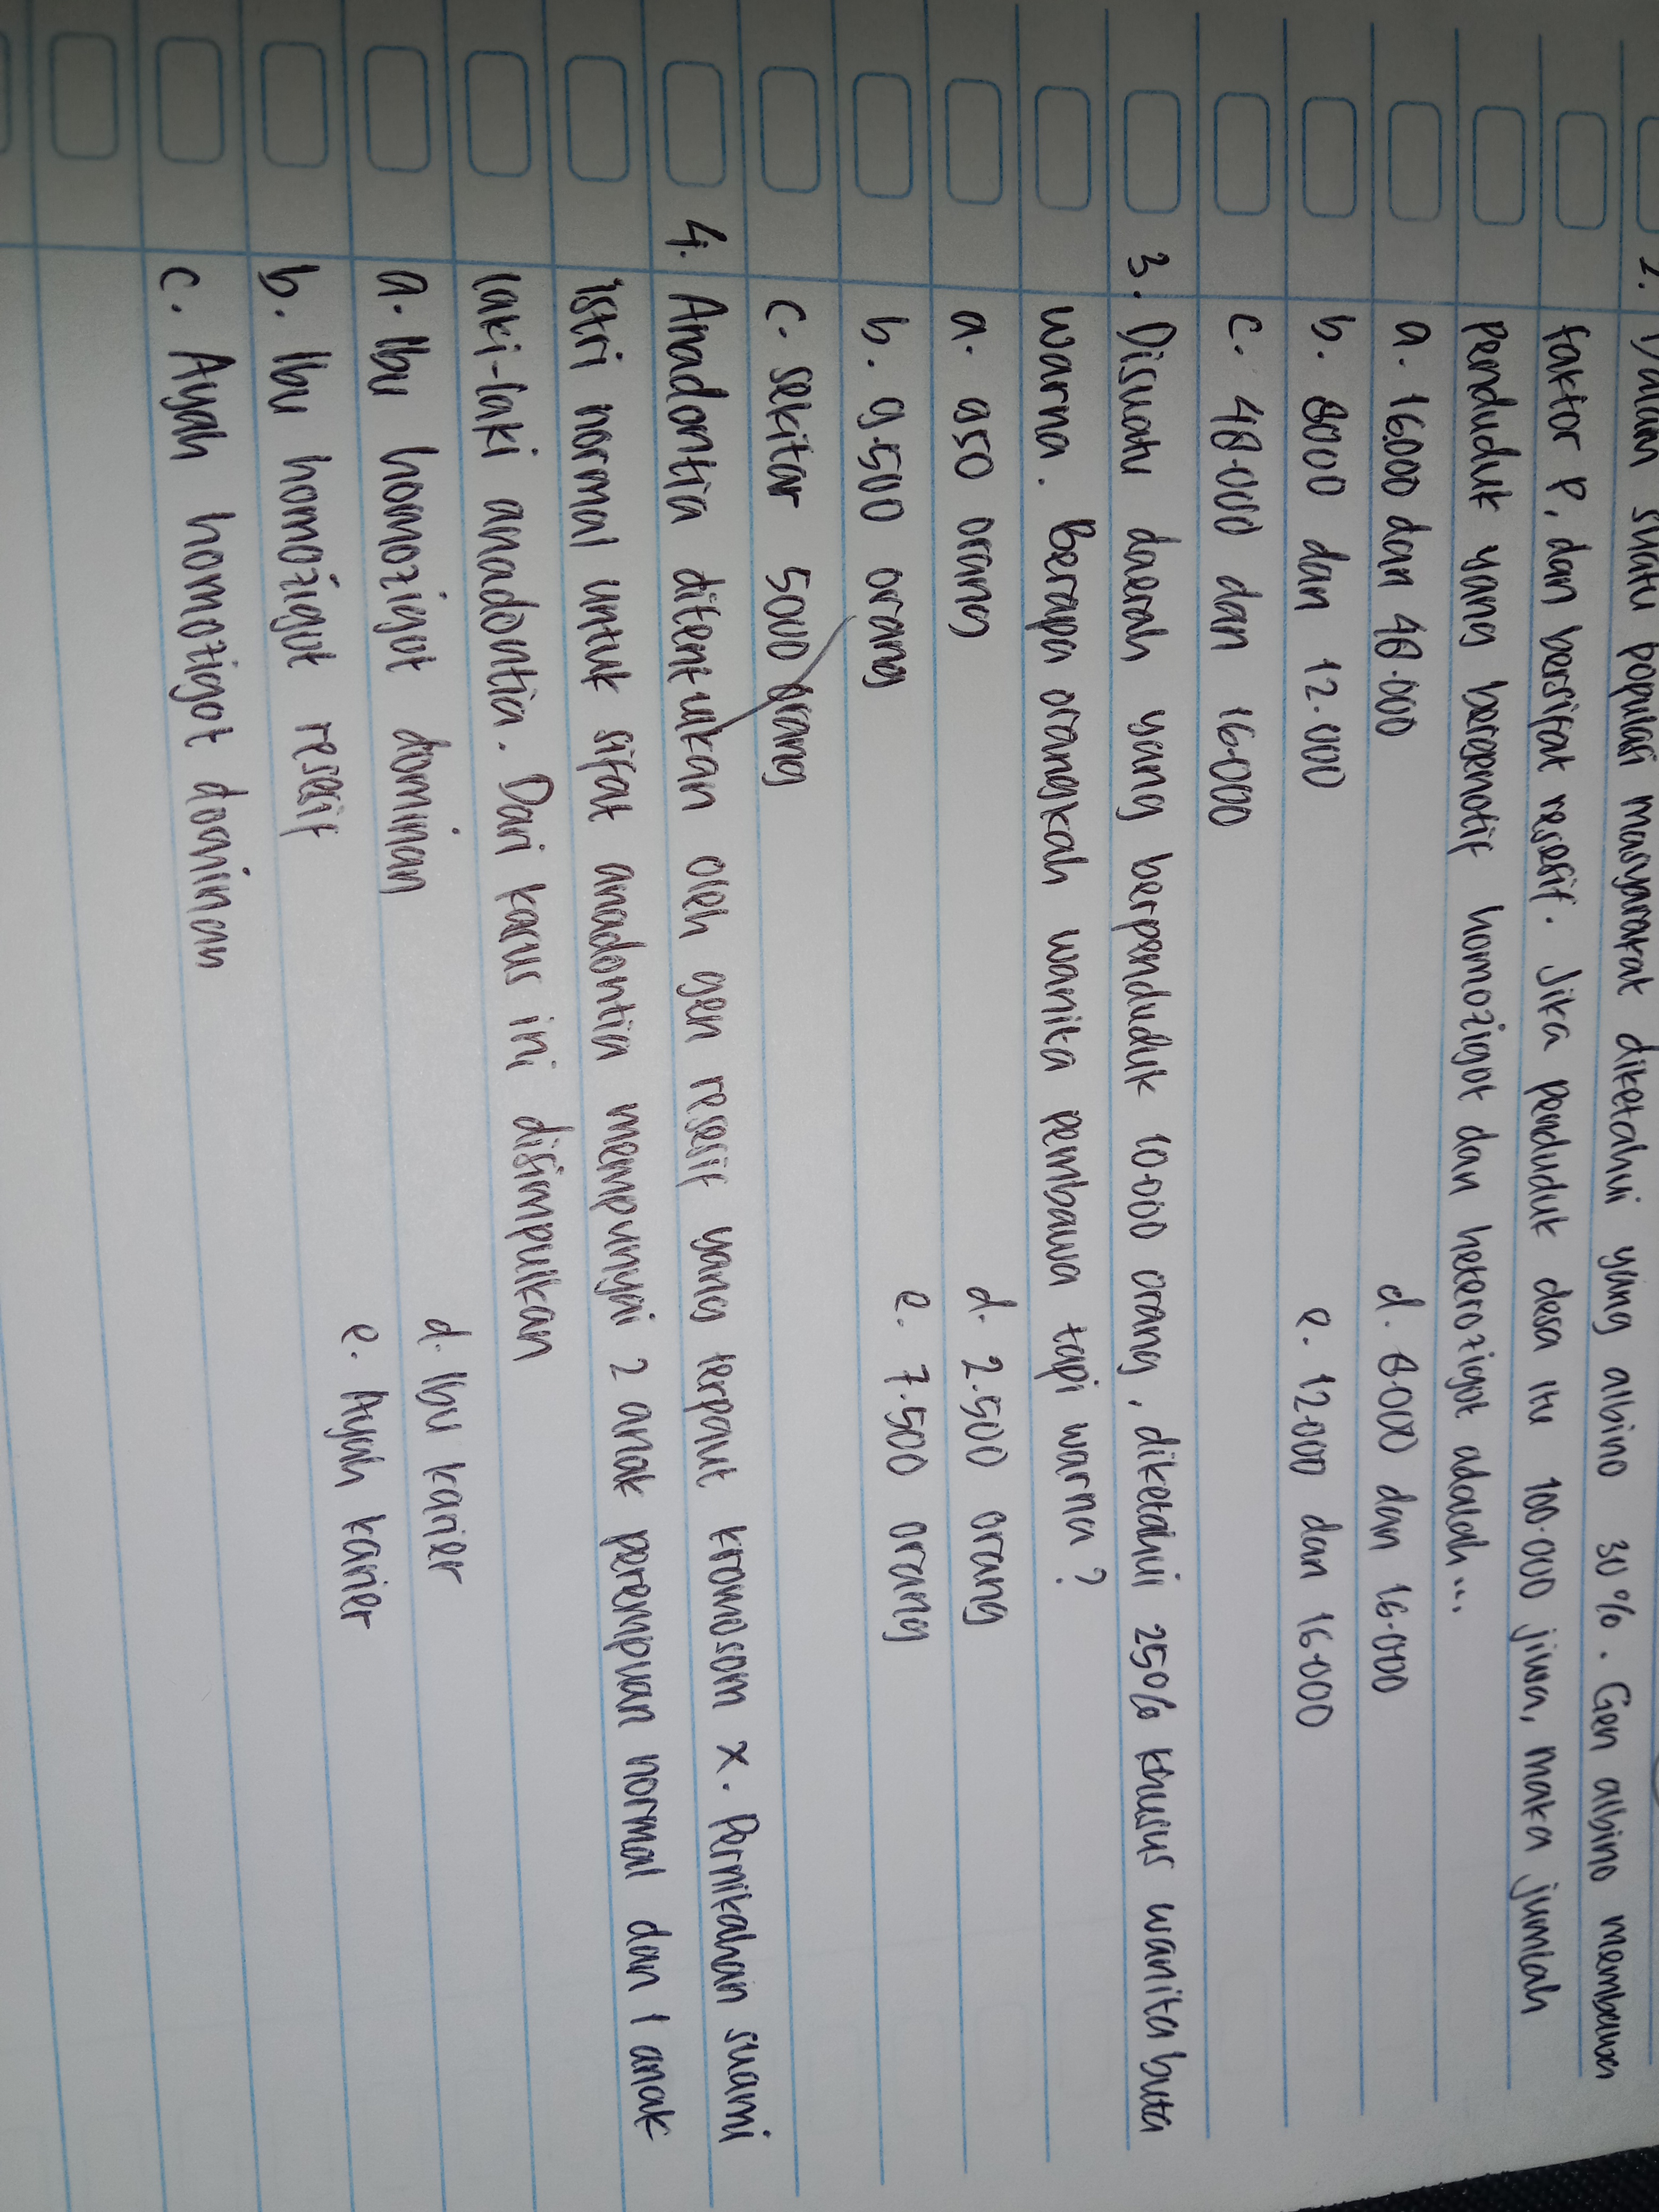 2. Dalam suatu populasi masyarakat diketahui yang albino 30%. Gen albino membawa
faktor P, dan bersifat resesif. Jika penduduk desa itu 100.000 jiwa, maka jumlah
penduduk yang bergenotif homozigot dan heterozigot adalah...
a. 16.000 dan 48.000 d. 8.000 dan 16.000
b. 8000 dan 12.000 e. 12.000 dan 16.000
c. 48.000 dan 16.000
3. Disuatu daerah yang berpenduduk 10.000 orang, diketahui 25% khusus wanita buta
warna. Berapa orangkah wanita pembawa tapi warna?
a. 950 orang d. 2.500 orang
b. 9.500 orang e. 7.500 orang
c. sekitar 5000 orang
4. Anadontia ditentukan oleh gen resesif yang terpaut kromosom x. Pernikahan suami
istri normal untuk sifat anadontia mempunyai 2 anak perempuan normal dan 1 anak
laki-laki anadontia. Dari kasus ini disimpulkan
a. Ibu homozigot dominan d. Ibu karier
b. Ibu homozigot resesif e. Ayah karier
c. Ayah homozigot dominan